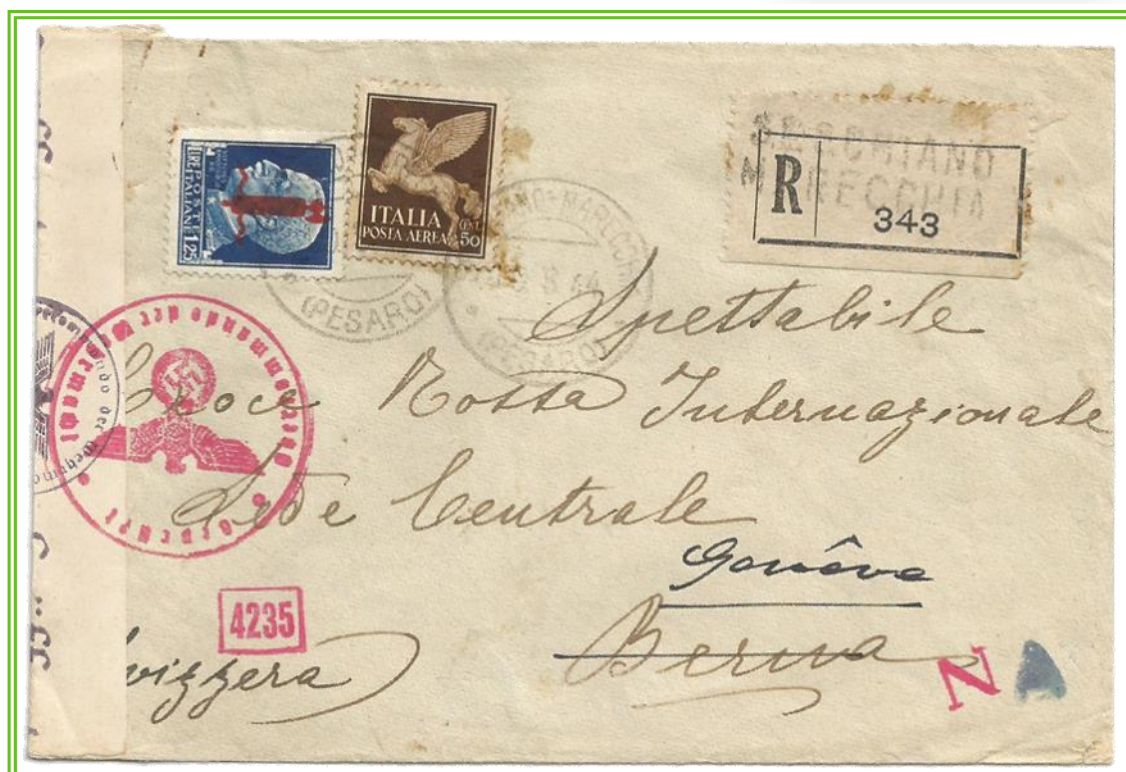 POSTE
ITALIANE
LIRE
1,25
ITALIA
POSTA AEREA
CENT.
50
(PESARO)
(PESARO)
SECCHIANO
MARECCHIA
R
343
Spettabile
Croce Rossa Internazionale
Sede Centrale
Genève
Berna
Svizzera
Oberkommando der Wehrmacht
geprüft
4235
N
A